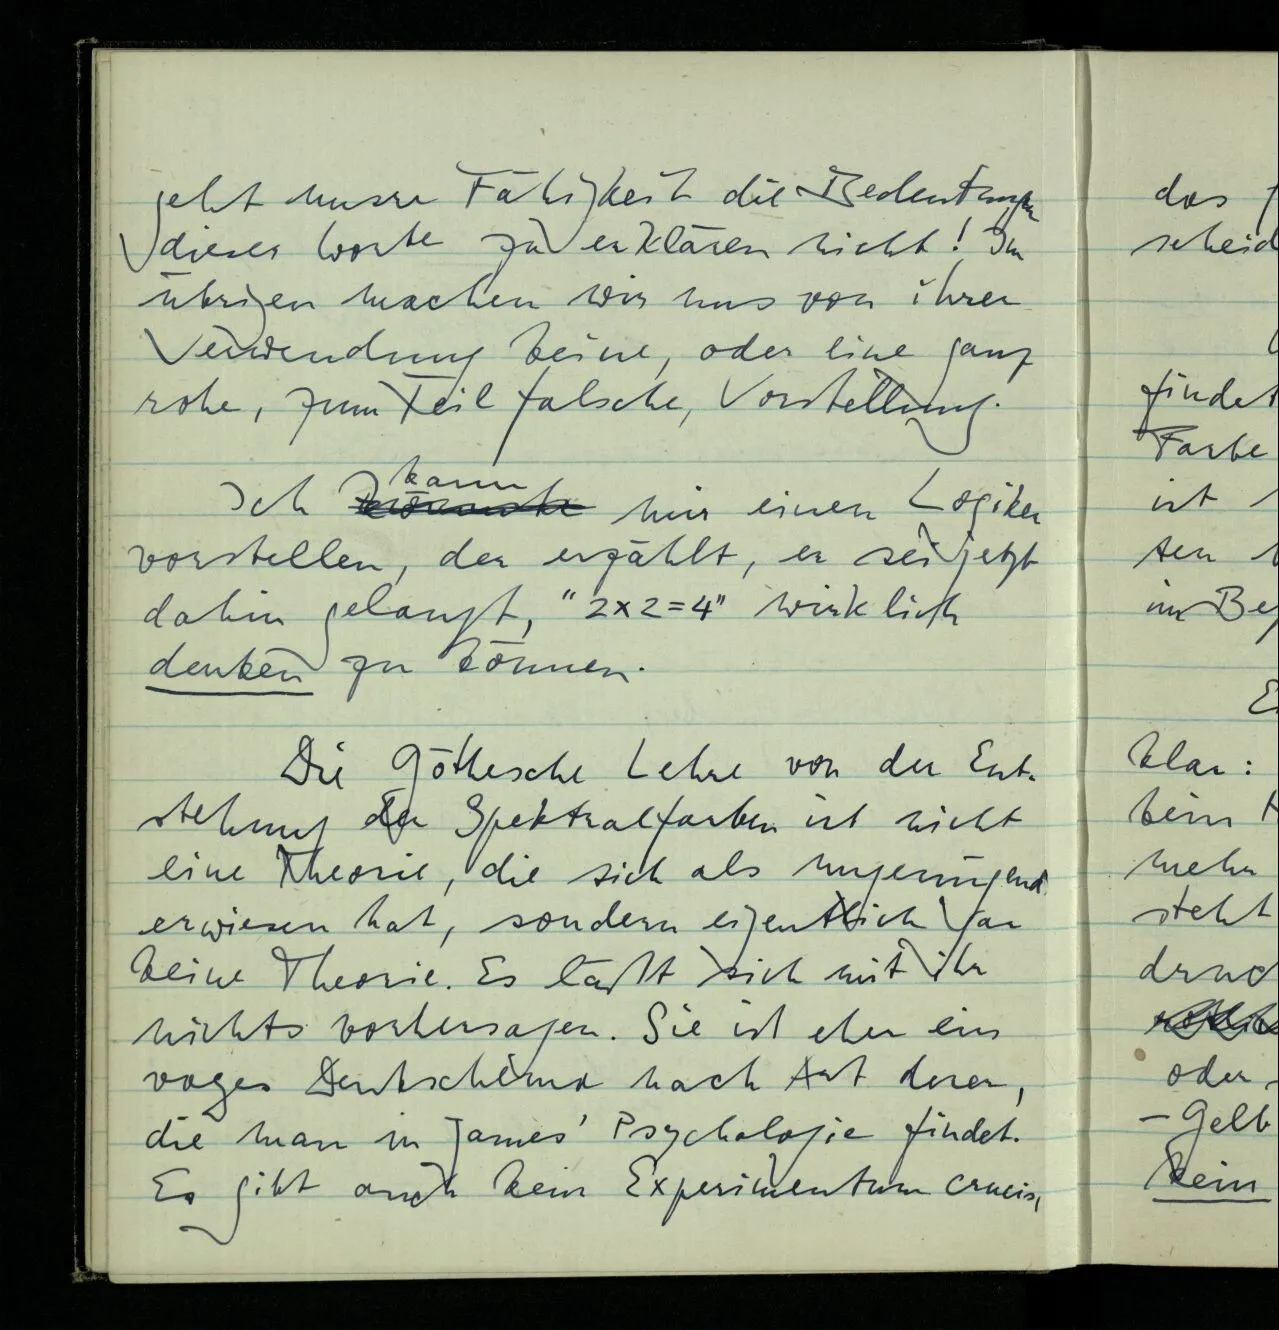 geht unsre Fähigkeit die Bedeutungen
dieser Worte zu erklären nicht! Im
übrigen machen wir uns von ihrer
Verwendung keine, oder eine ganz
rohe, zum Teil falsche, Vorstellung.
kann
Ich mir einen Logiker
vorstellen, der erzählt, er sei jetzt
dahin gelangt, "2x2=4" wirklich
denken zu können.
Die Göthesche Lehre von der Ent-
stehung der Spektralfarben ist nicht
eine Theorie, die sich als ungenügend
erwiesen hat, sondern eigentlich gar
keine Theorie. Es läßt sich mit ihr
nichts vorhersagen. Sie ist eher ein
vages Denkschema nach Art derer,
die man in James' Psychologie findet.
Es gibt auch kein Experimentum crucis,
das
scheid
findet
Farbe
ist
ten
im Beg
klar:
beim
mehr
steht
druc
oder
- Gelb
kein